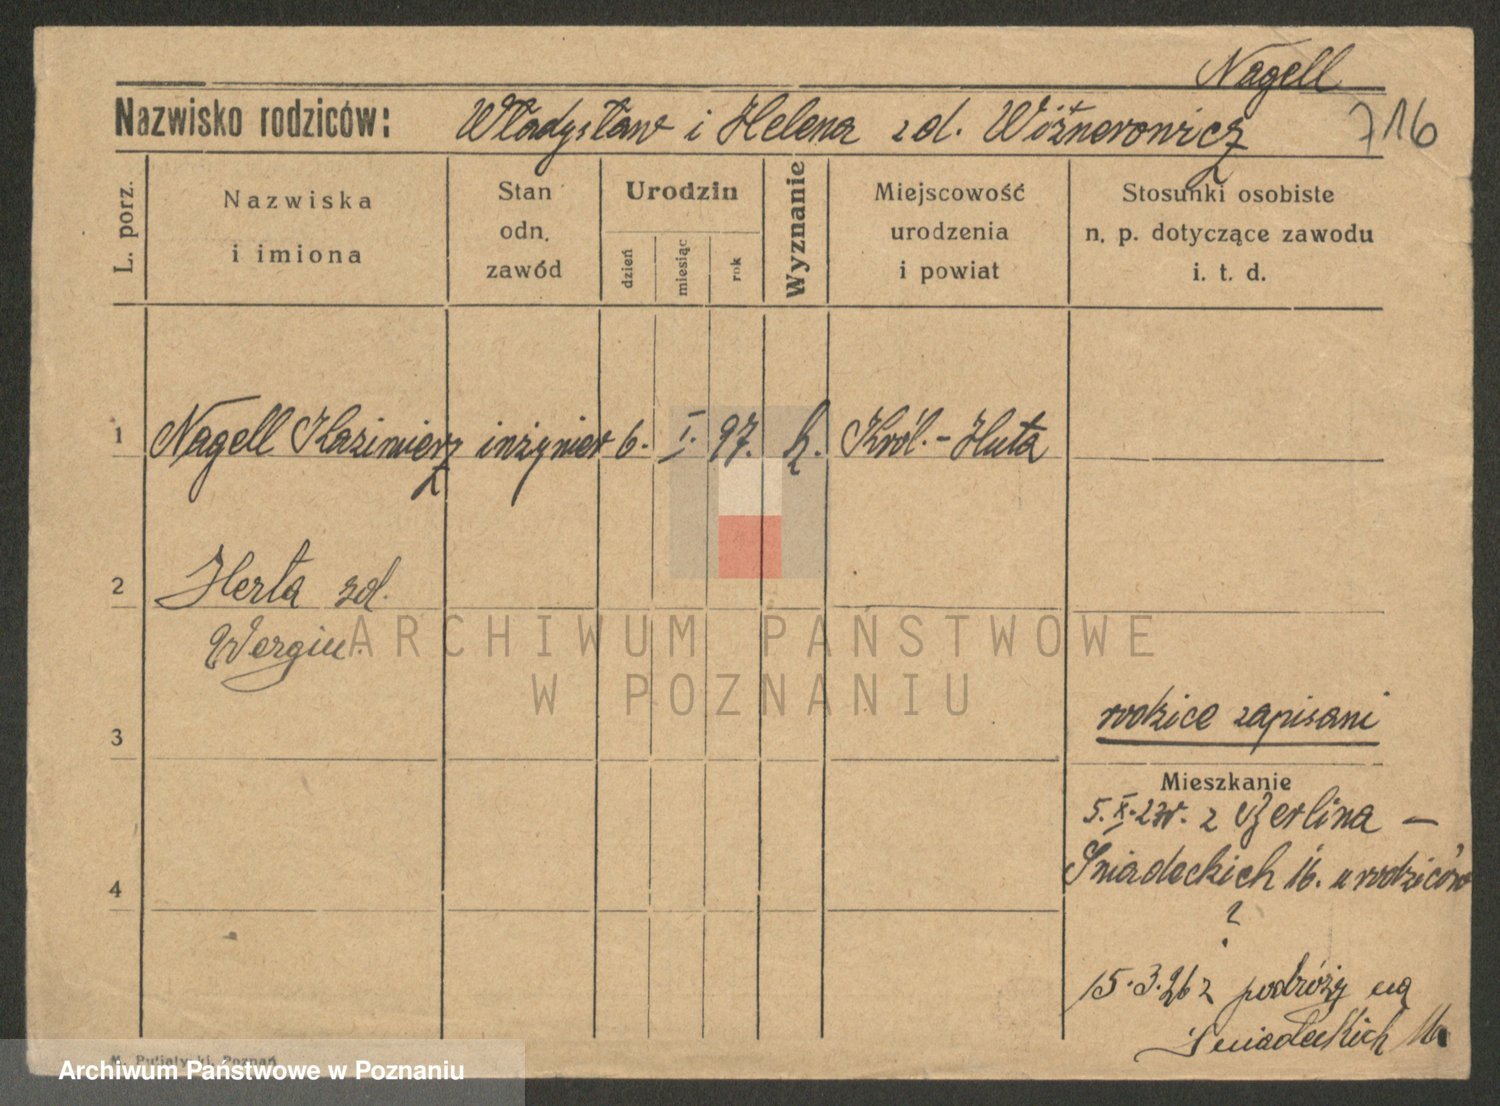 Nagell
Nazwisko rodziców: Władysław i Helena zd. Wiżnerowicz 716
L. porz.
Nazwiska
i imiona
Stan
odn.
zawód
Urodzin
dzień
miesiąc
rok
Wyznanie
Miejscowość
urodzenia
i powiat
Stosunki osobiste
n. p. dotyczące zawodu
i. t. d.
1 Nagell Kazimierz inżynier 6. I. 97. k. Król.-Huta
2 Herta zd.
Wergin.
3
rodzice zapisani
Mieszkanie
5. X. 23r. z Berlina –
Śniadeckich 16. u rodziców
?
4
15.3.26 z podróży na
Śniadeckich
ARCHIWUM PAŃSTWOWE
W POZNANIU
M. Putiatycki, Poznań
Archiwum Państwowe w Poznaniu